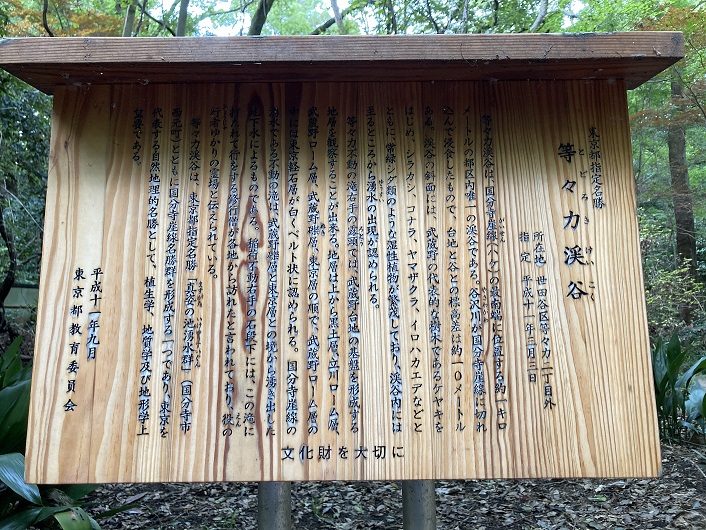 東京都指定名勝
等々力渓谷
とどろきけいこく
所在地 世田谷区等々力一丁目外
指定 平成十一年三月三日
等々力渓谷は、国分寺崖線(ハケ)の最南端に位置する約一キロ
がいせん
メートルの都区内唯一の渓谷である。谷沢川が国分寺崖線に切れ
やざわがわ
込んで浸食したもので、台地と谷との標高差は約一〇メートル
前後、渓谷の斜面には、武蔵野の代表的な樹木であるケヤキを
はじめ、シラカシ、コナラ、ヤマザクラ、イロハカエデなどと
ともに、常緑シダ類のような湿性植物が繁茂しており、渓谷内には
至るところから湧水の出現が認められる。
等々力不動の滝右手の露頭では、武蔵野台地の基盤を形成する
地層を観察することが出来る。地層は上から黒土層、立川ローム層、
武蔵野ローム層、武蔵野礫層、東京層の順で、武蔵野ローム層の
中には東京軽石層が白くベルト状に認められる。国分寺崖線の
湧水である不動の滝は、武蔵野礫層と東京層との境から湧き出した
地下水によるものである。稲荷不動右手の石段下には、この滝に
打たれて行をする修行僧が各地から訪れたと言われており、役の
えん
行者ゆかりの霊場と伝えられている。
等々力渓谷は、東京都指定名勝「真姿の池湧水群」(国分寺市
ますがた いけゆうすいぐん
西元町)とともに国分寺崖線名勝群を形成する一つであり、東京を
代表する自然地理的名勝として、植生学、地質学及び地形学上
重要である。
平成十一年九月
東京都教育委員会
文化財を大切に